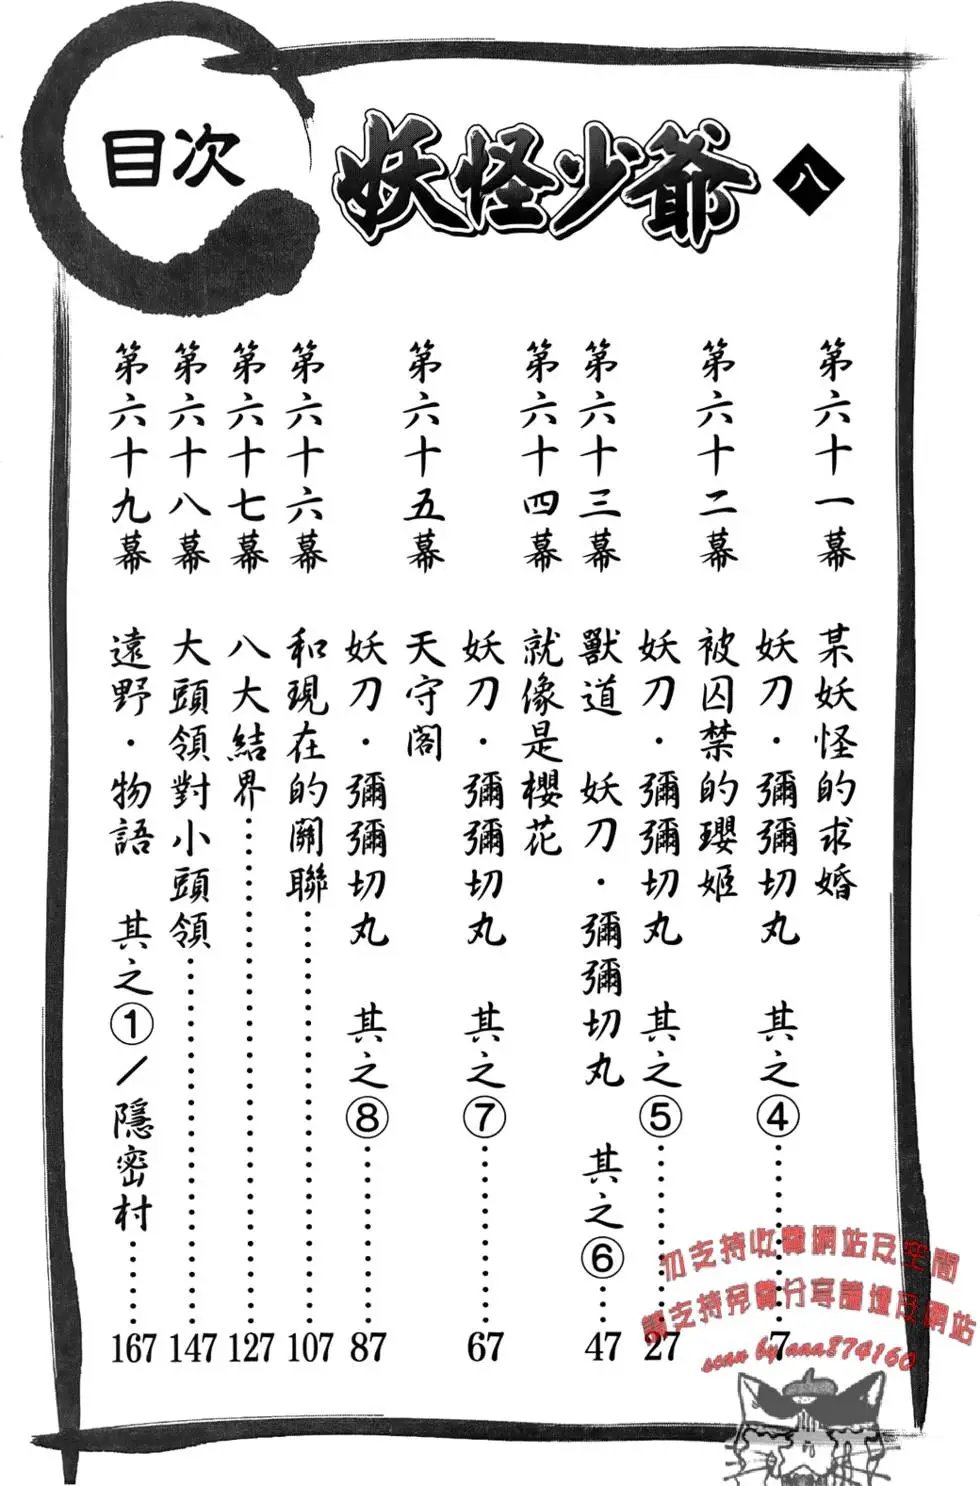 目次
妖怪少爺 八
第六十一幕 某妖怪的求婚
妖刀・彌彌切丸 其之④……7
第六十二幕 被囚禁的瓔姬
妖刀・彌彌切丸 其之⑤……27
第六十三幕 獸道 妖刀・彌彌切丸 其之⑥……47
第六十四幕 就像是櫻花
妖刀・彌彌切丸 其之⑦……67
第六十五幕 天守閣
妖刀・彌彌切丸 其之⑧……87
第六十六幕 和現在的關聯……107
第六十七幕 八大結界……127
第六十八幕 大頭領對小頭領……147
第六十九幕 遠野・物語 其之①/隱密村……167
勿支持收費網站及空間
請支持免費分享論壇及網站
scan by aaa874160